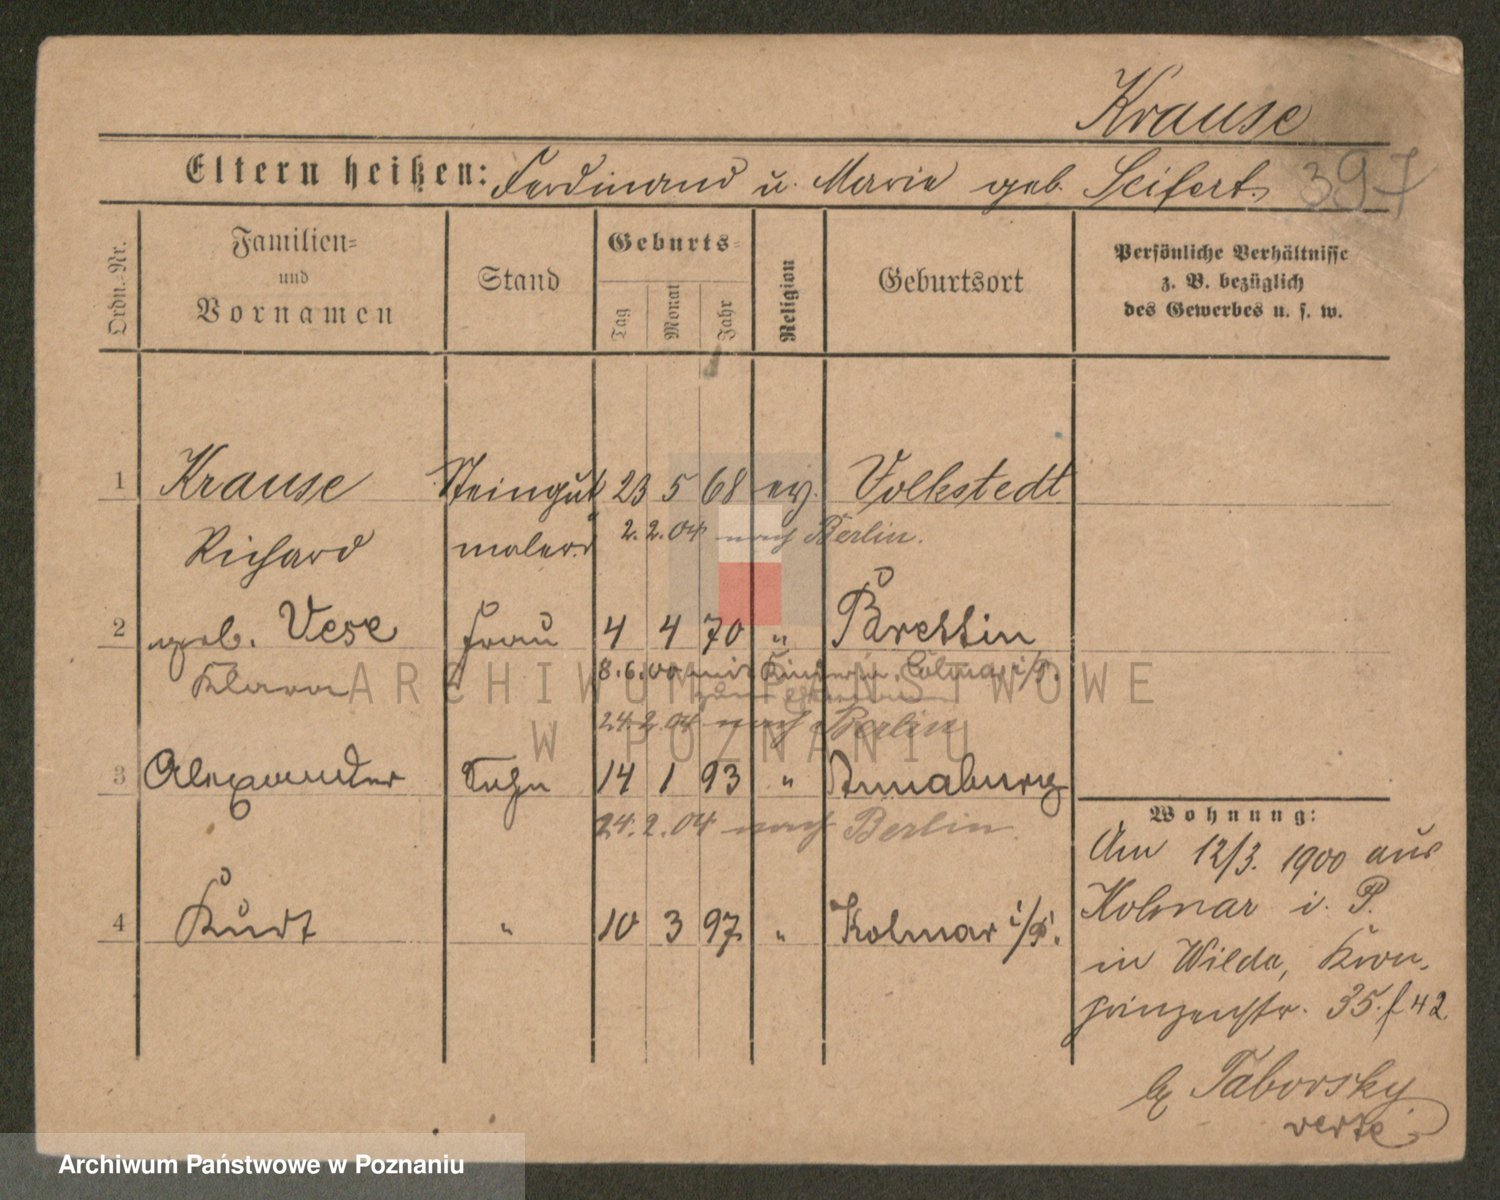 Krause
Eltern heißen: Ferdinand u. Marie geb. Seifert. 397
Ordn.-Nr.
Familien-
und
Vornamen
Stand
Geburts-
Tag
Monat
Jahr
Religion
Geburtsort
Persönliche Verhältnisse
z. B. bezüglich
des Gewerbes u. s. w.
1 Krause Steingut 23 5 68 ev. Volkstedt
Richard maler 2.2.04 nach Berlin.
2 geb. Vese Frau 4 4 70 " Prettin
Klara 8.6.00 mit Kinder n. Colmar i/P.
24.2.04 nach Berlin
3 Alexander Sohn 14 1 93 " Annaburg
24.2.04 nach Berlin.
4 Kurt " 10 3 97 " Kolmar i/P.
Wohnung:
Am 12/3. 1900 aus
Kolmar i. P.
in Wilda, Kron-
prinzenstr. 35. f 42
b/ Taborsky
verte
ARCHIWUM PAŃSTWOWE
W POZNANIU
Archiwum Państwowe w Poznaniu